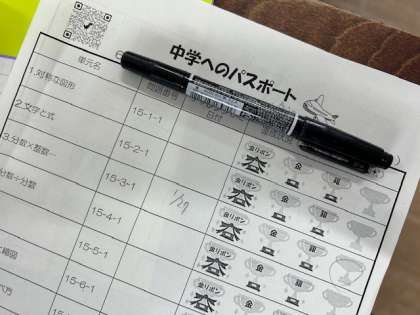 中学へのパスポート
単元名
日付
1.対称な図形
15-1-1
金リボン 金 銀
2.文字と式
15-2-1
金リボン 金 銀
3.分数×整数…
15-3-1
1/27
金リボン 金 銀
分数÷分数
15-4-1
金リボン 金 銀
15-5-1
金リボン 金 銀
15-6-1